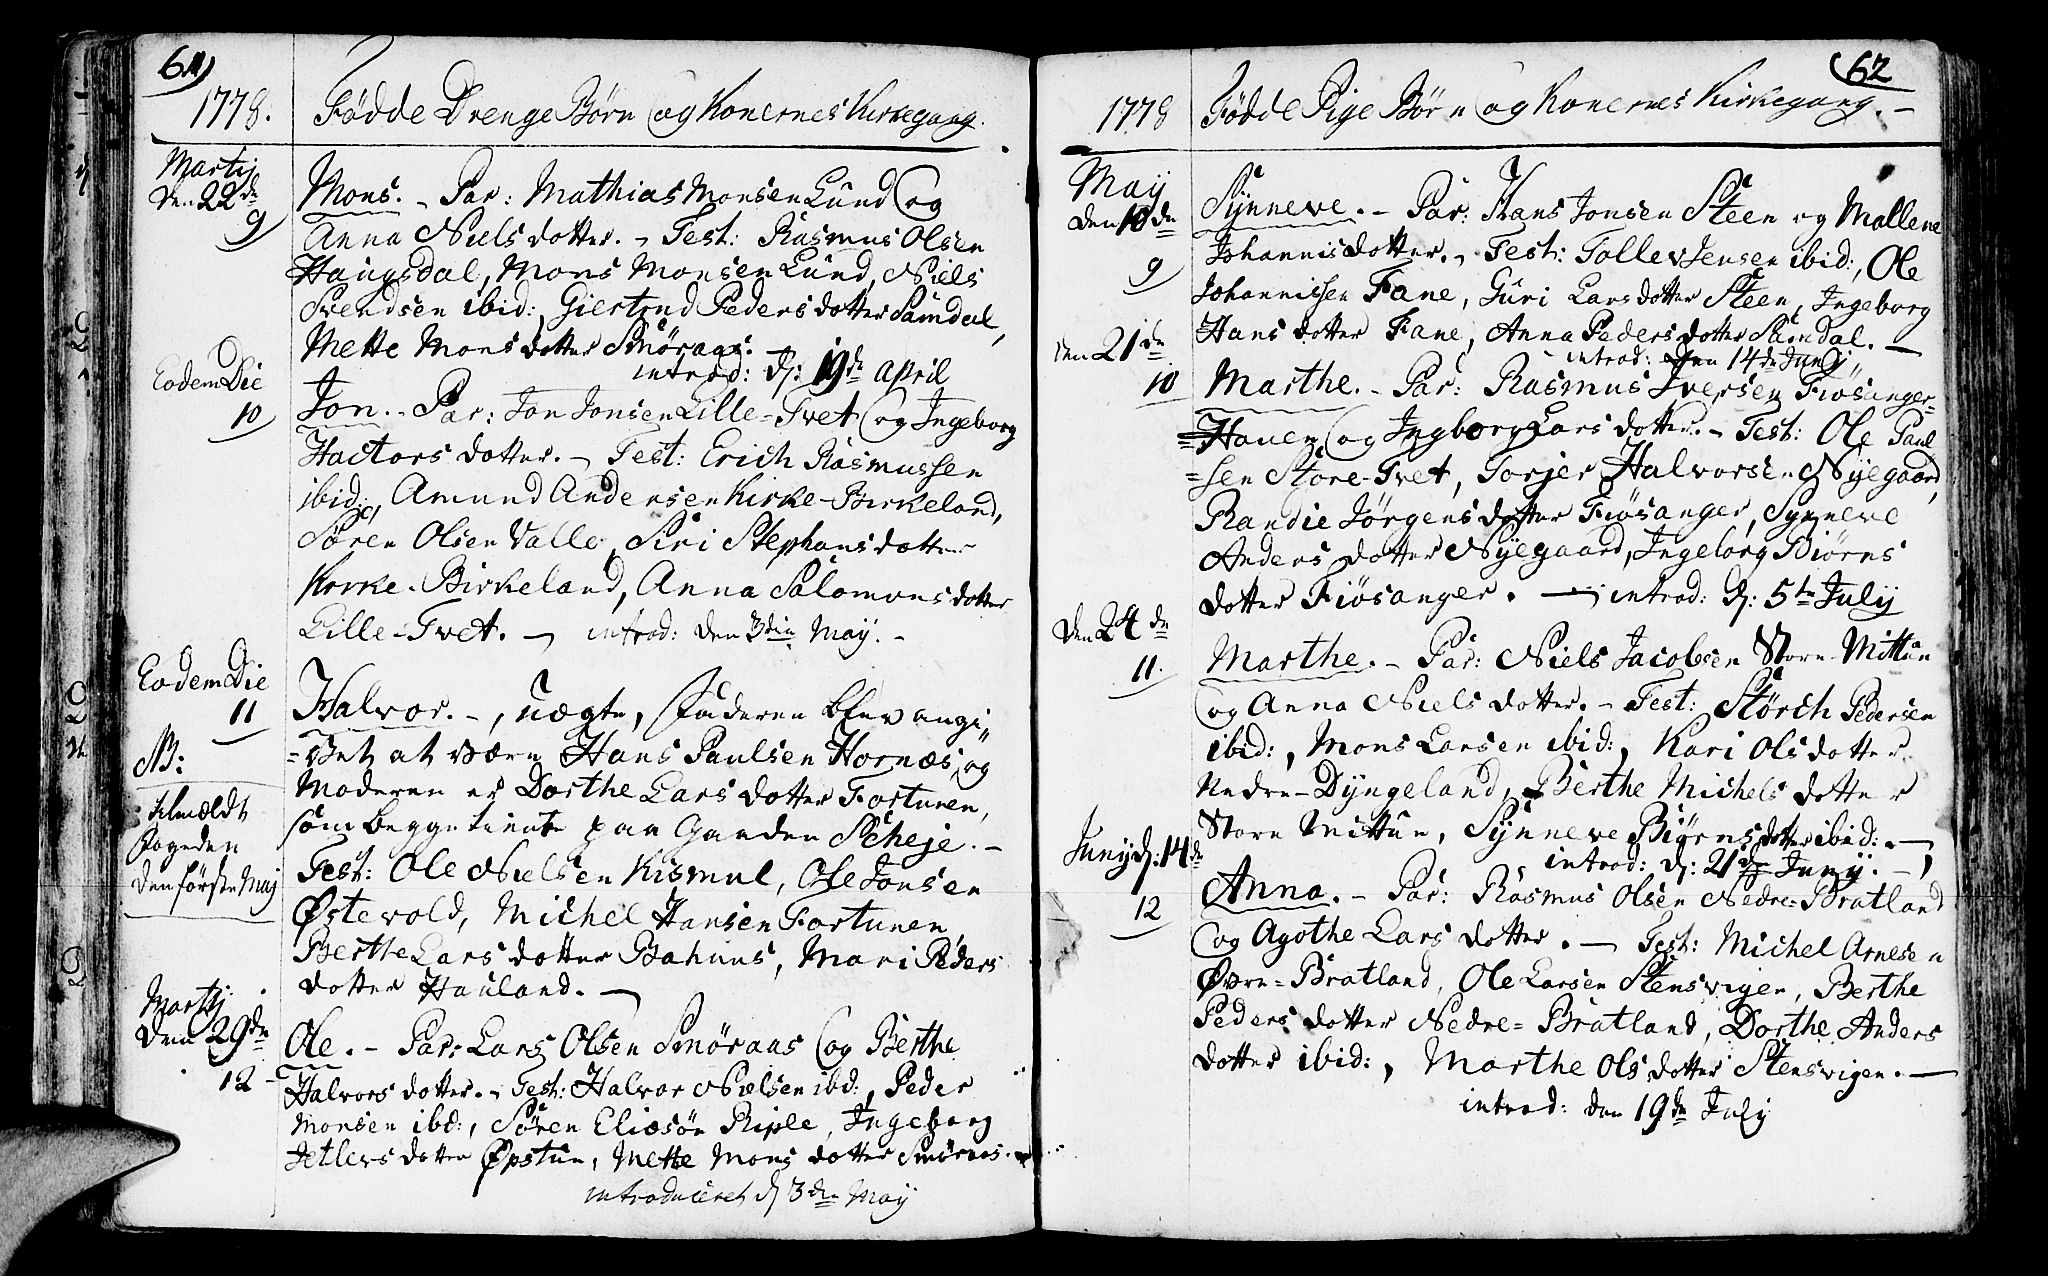 61)
1778. Fødde Drenge Børn og Konernes Kirkegang.
Martij
den 22de
9
Mons. - Par: Mathias Monsen Lund og
Anna Niels dotter. - Test: Rasmus Olsen
Haugsdal, Mons Monsen Lund, Niels
Svendsen ibid:, Giertrud Peders dotter Samdal,
Mette Mons dotter Smøraas.
introd: d: 19de April
Eodem Die
10
Jon. - Par: Jon Jonsen Lille-Tvet og Ingeborg
Hactors dotter. - Test: Erich Rasmussen
ibid:, Amund Andersen Kirke-Birkeland,
Søren Olsen Valle, Siri Stephans dotter
Kirke-Birkeland, Anna Salomons dotter
Lille-Tvet. - introd: den 3die May. -
Eodem Die
11
NB:
tilmældt
Fogeden
den første Maj
Halvor. -, uægte, Faderen blev angi
=vet at være Hans Paulsen Hornæs, og
Moderen er Dorthe Lars dotter Fortunen,
som begge tiente paa Gaarden Scheje. -
Test: Ole Nielsen Kismul, Ole Jonsen
Østevold, Michel Hansen Fortunen,
Berthe Lars dotter Bahuus, Mari Peders
dotter Hauland. -
Martij
den 29de
12
Ole. - Par: Lars Olsen Smøraas og Berthe
Halvors dotter. - Test: Halvor Nielsen ibd:, Peder
Monsen ibd:, Søren Eliæsøn Riple, Ingeborg
Jetlevs dotter Øpstun, Mette Mons dotter Smøraas.
introduceret d 3die May
(62
1778 Fødde Pige Børn og Konernes Kirkegang. -
May
den 10de
9
Synneve. - Par: Hans Jonsen Steen og Mallene
Johannis dotter. - Test: Tollev Jensen ibid:, Ole
Johannissen Fane, Guri Lars dotter Steen, Ingeborg
Hans dotter Fane, Anna Peders dotter Samdal. -
introd: den 14de Junij
den 21de
10
Marthe. - Par: Rasmus Iversen Fiøsanger-
=Hauen og Ingborg Lars dotter. - Test: Ole Paul
=sen Store-Tvet, Torjer Halvorsen Nyegaard,
Randie Jørgens dotter Fiøsanger, Synneve
Anders dotter Nyegaard, Ingeborg Biørns
dotter Fiøsanger. - introd: d: 5te July
den 24de
11.
Marthe. - Par: Niels Jacobsen Store Mittun
og Anna Niels dotter. - Test: Størch Pedersen
ibid:, Mons Larsen ibid:, Kari Ols dotter
Nedre-Dyngeland, Berthe Michels dotter
Store Mittun, Synneve Biørns dotter ibid: -
introd: d: 21de Juny. -
Juny d: 14de
12
Anna. - Par: Rasmus Olsen Nedre-Bratland
og Agothe Lars dotter. - Test: Michel Arnesen
Øvre=Bratland, Ole Larsen Stensvigen, Berthe
Peders dotter Nedre=Bratland, Dorthe Anders
dotter ibid:, Marthe Ols dotter Stensvigen. -
introd: den 19de July